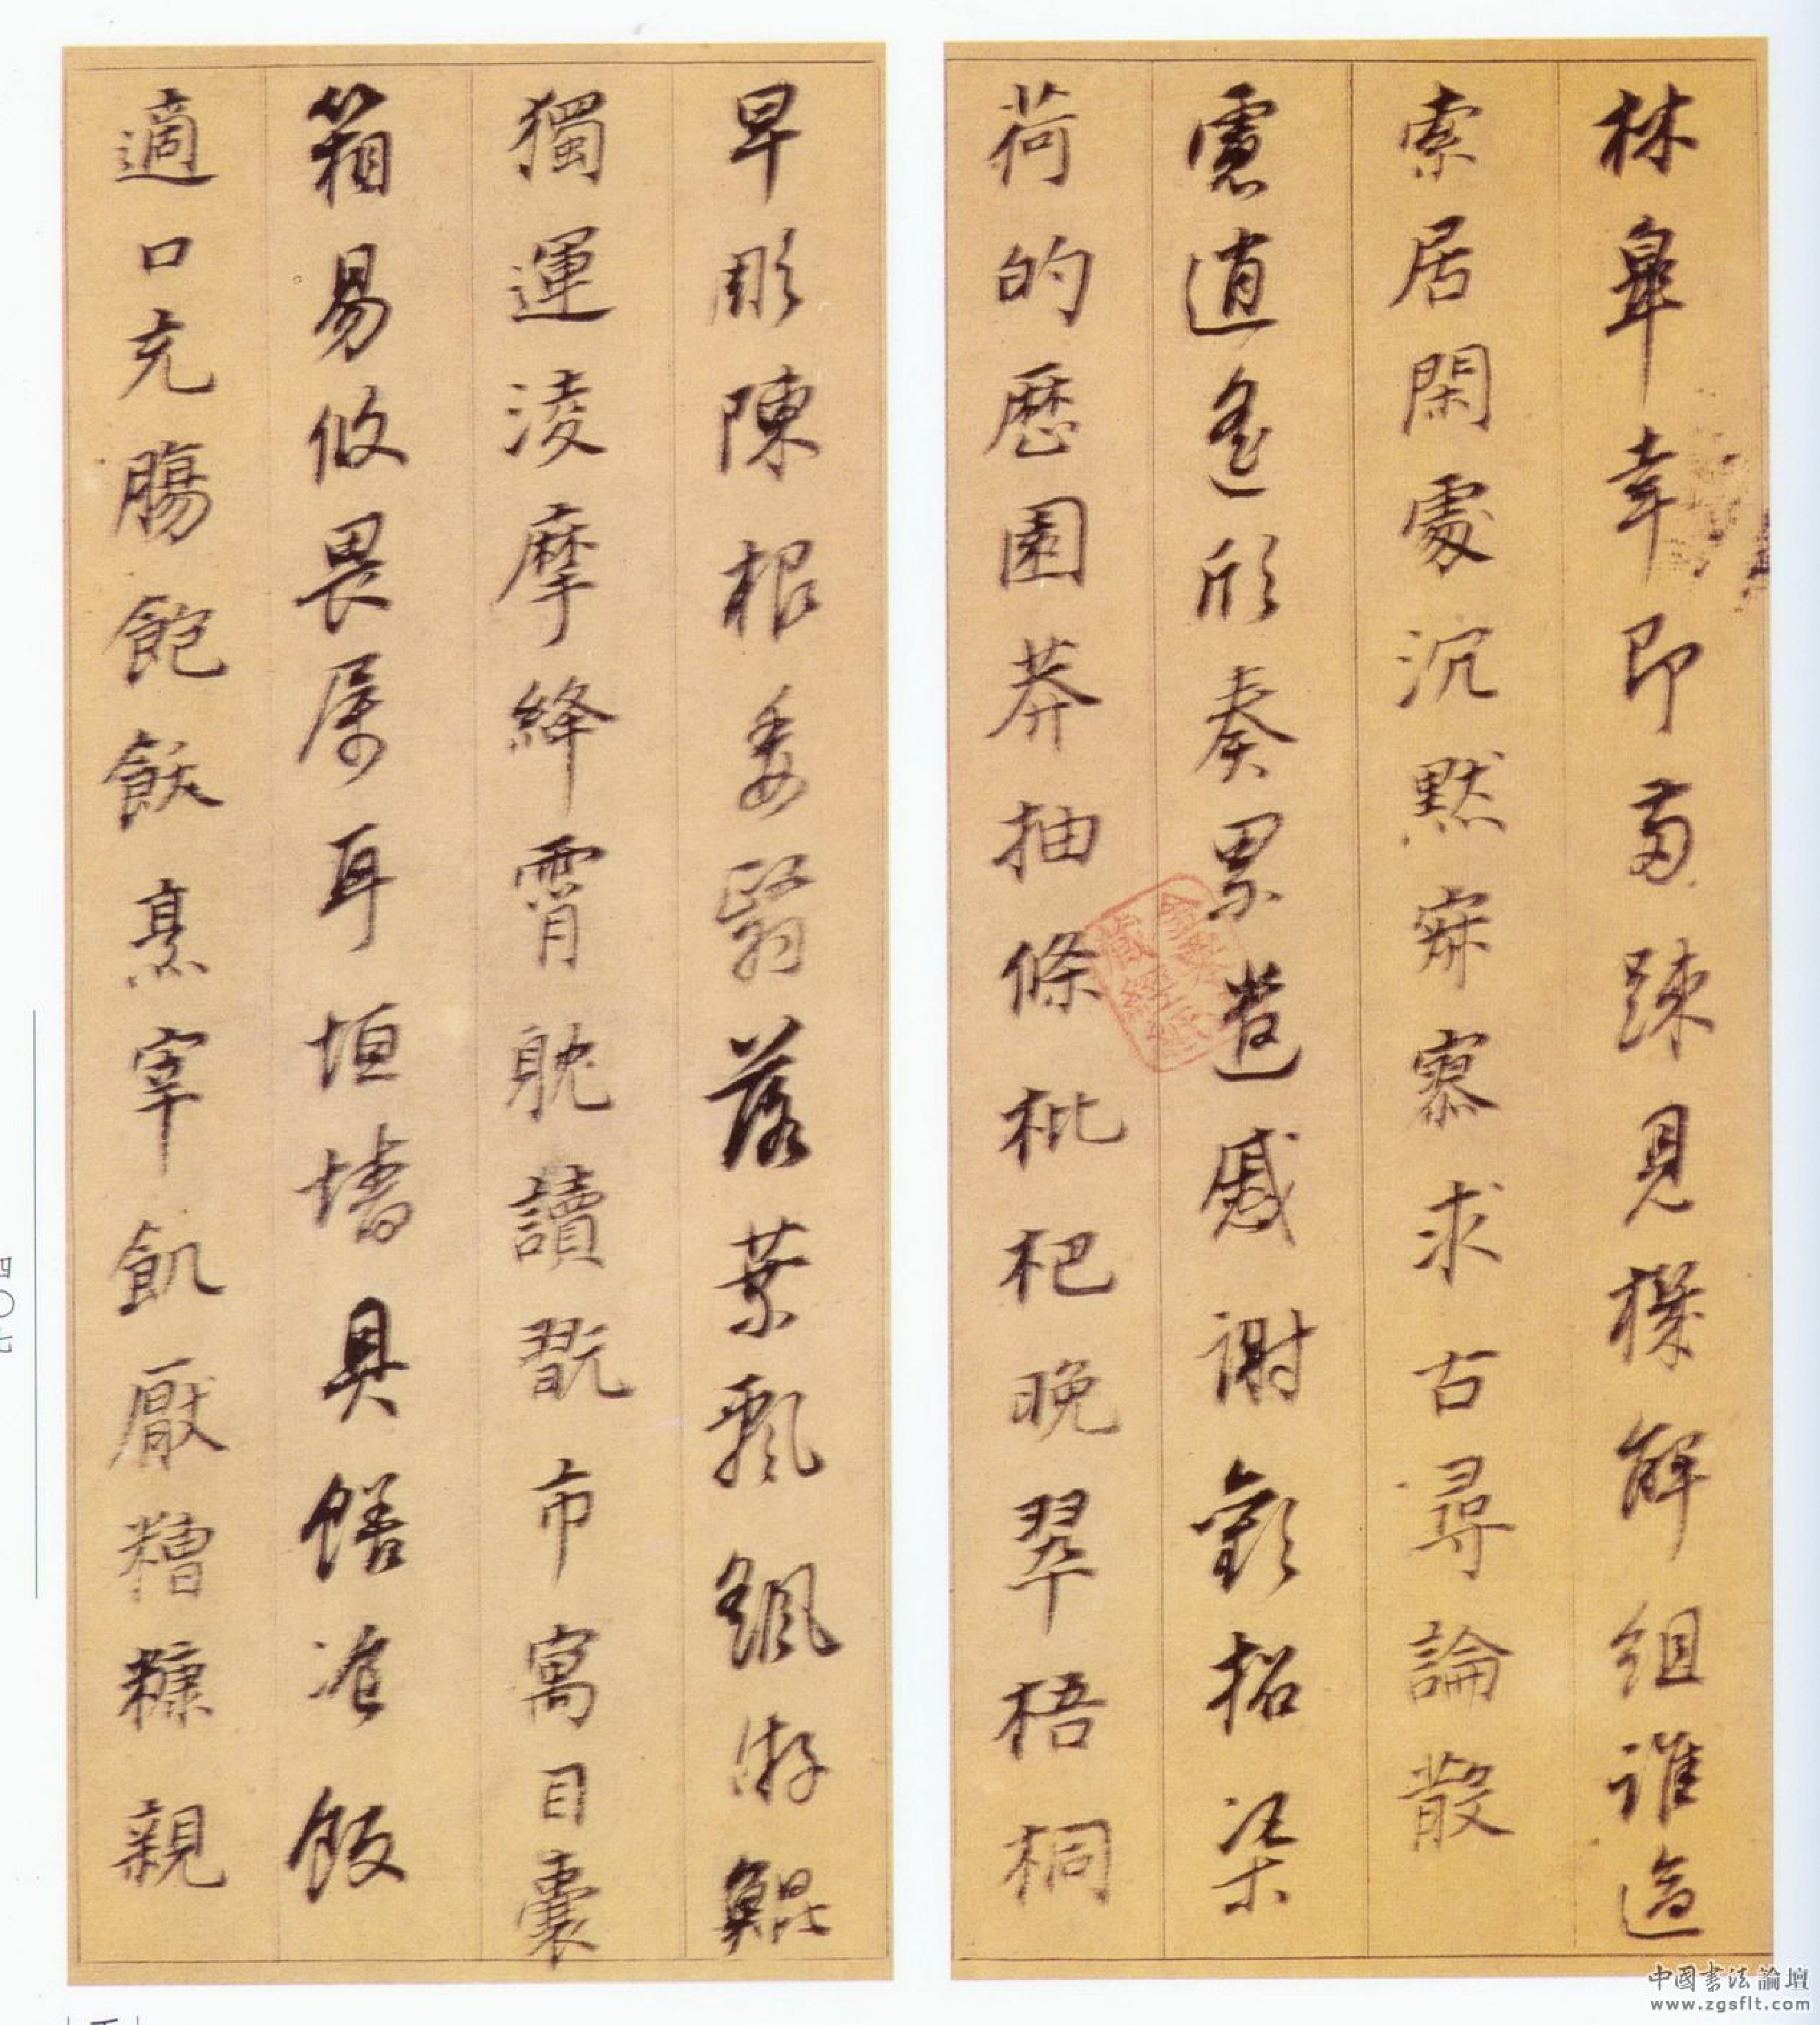 林皋幸即兩疎見機解組誰逼
索居閑處沉默寂寥求古尋論散
慮逍遙欣奏累遣慼謝歡招渠
荷的歷園莽抽條枇杷晚翠梧桐
早彫陳根委翳落葉飄颻游鯤
獨運淩摩絳霄耽讀翫市寓目囊
箱易攸畏屬耳垣墻具膳飡飯
適口充腸飽飫烹宰飢厭糟糠親
金粟山藏經紙
四〇七
中國書法論壇
www.zgsflt.com